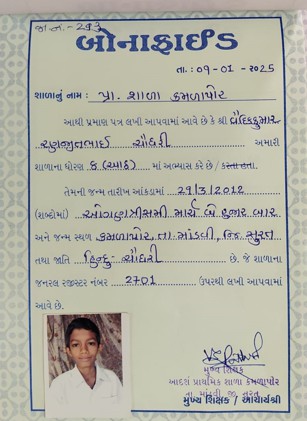 જા.નં.- 293
બોનાફાઈડ
તા. : 09-01 - 2025
શાળાનું નામ : પ્રા. શાળા કમળાપોર
આથી પ્રમાણ પત્ર લખી આપવામાં આવે છે કે શ્રી વૈદિકકુમાર
રણજીતભાઈ ચૌધરી અમારી
શાળાના ધોરણ ૮ (આઠ) માં અભ્યાસ કરે છે / કરતા હતા.
તેમની જન્મ તારીખ આંકડામાં 29/3/2012
(શબ્દોમાં) ઓગણત્રીસમી માર્ચ બે હજાર બાર
અને જન્મ સ્થળ કમળાપોર, તા. માંડવી, જિ. સુરત
તથા જાતિ હિન્દુ- ચૌધરી છે. જે શાળાના
જનરલ રજીસ્ટર નંબર 2701 ઉપરથી લખી આપવામાં
આવે છે.
મુખ્ય શિક્ષક
આદર્શ પ્રાથમિક શાળા કમળાપોર
તા. માંડવી જી. સુરત
મુખ્ય શિક્ષક / આચાર્યશ્રી